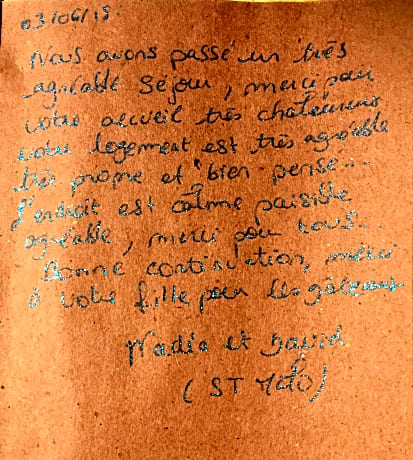 03/06/18.
Nous avons passé un très
agréable séjour, merci pour
votre accueil très chaleureux
votre logement est très agréable
très propre et "bien pensé"...
L'endroit est calme paisible
agréable, merci pour tous...
Bonne continuation, merci
à votre fille pour les gâteaux
Nadia et David.
(ST Malo)